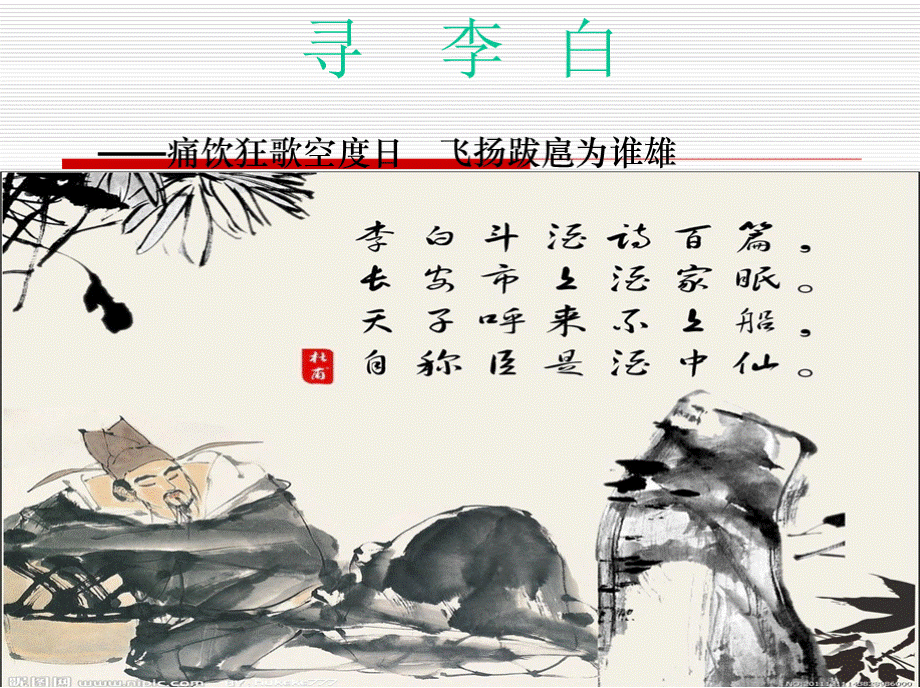 寻 李 白
——痛饮狂歌空度日 飞扬跋扈为谁雄
李白斗酒诗百篇，
长安市上酒家眠。
天子呼来不上船，
自称臣是酒中仙。
杜甫
昵图网 www.nipic.com